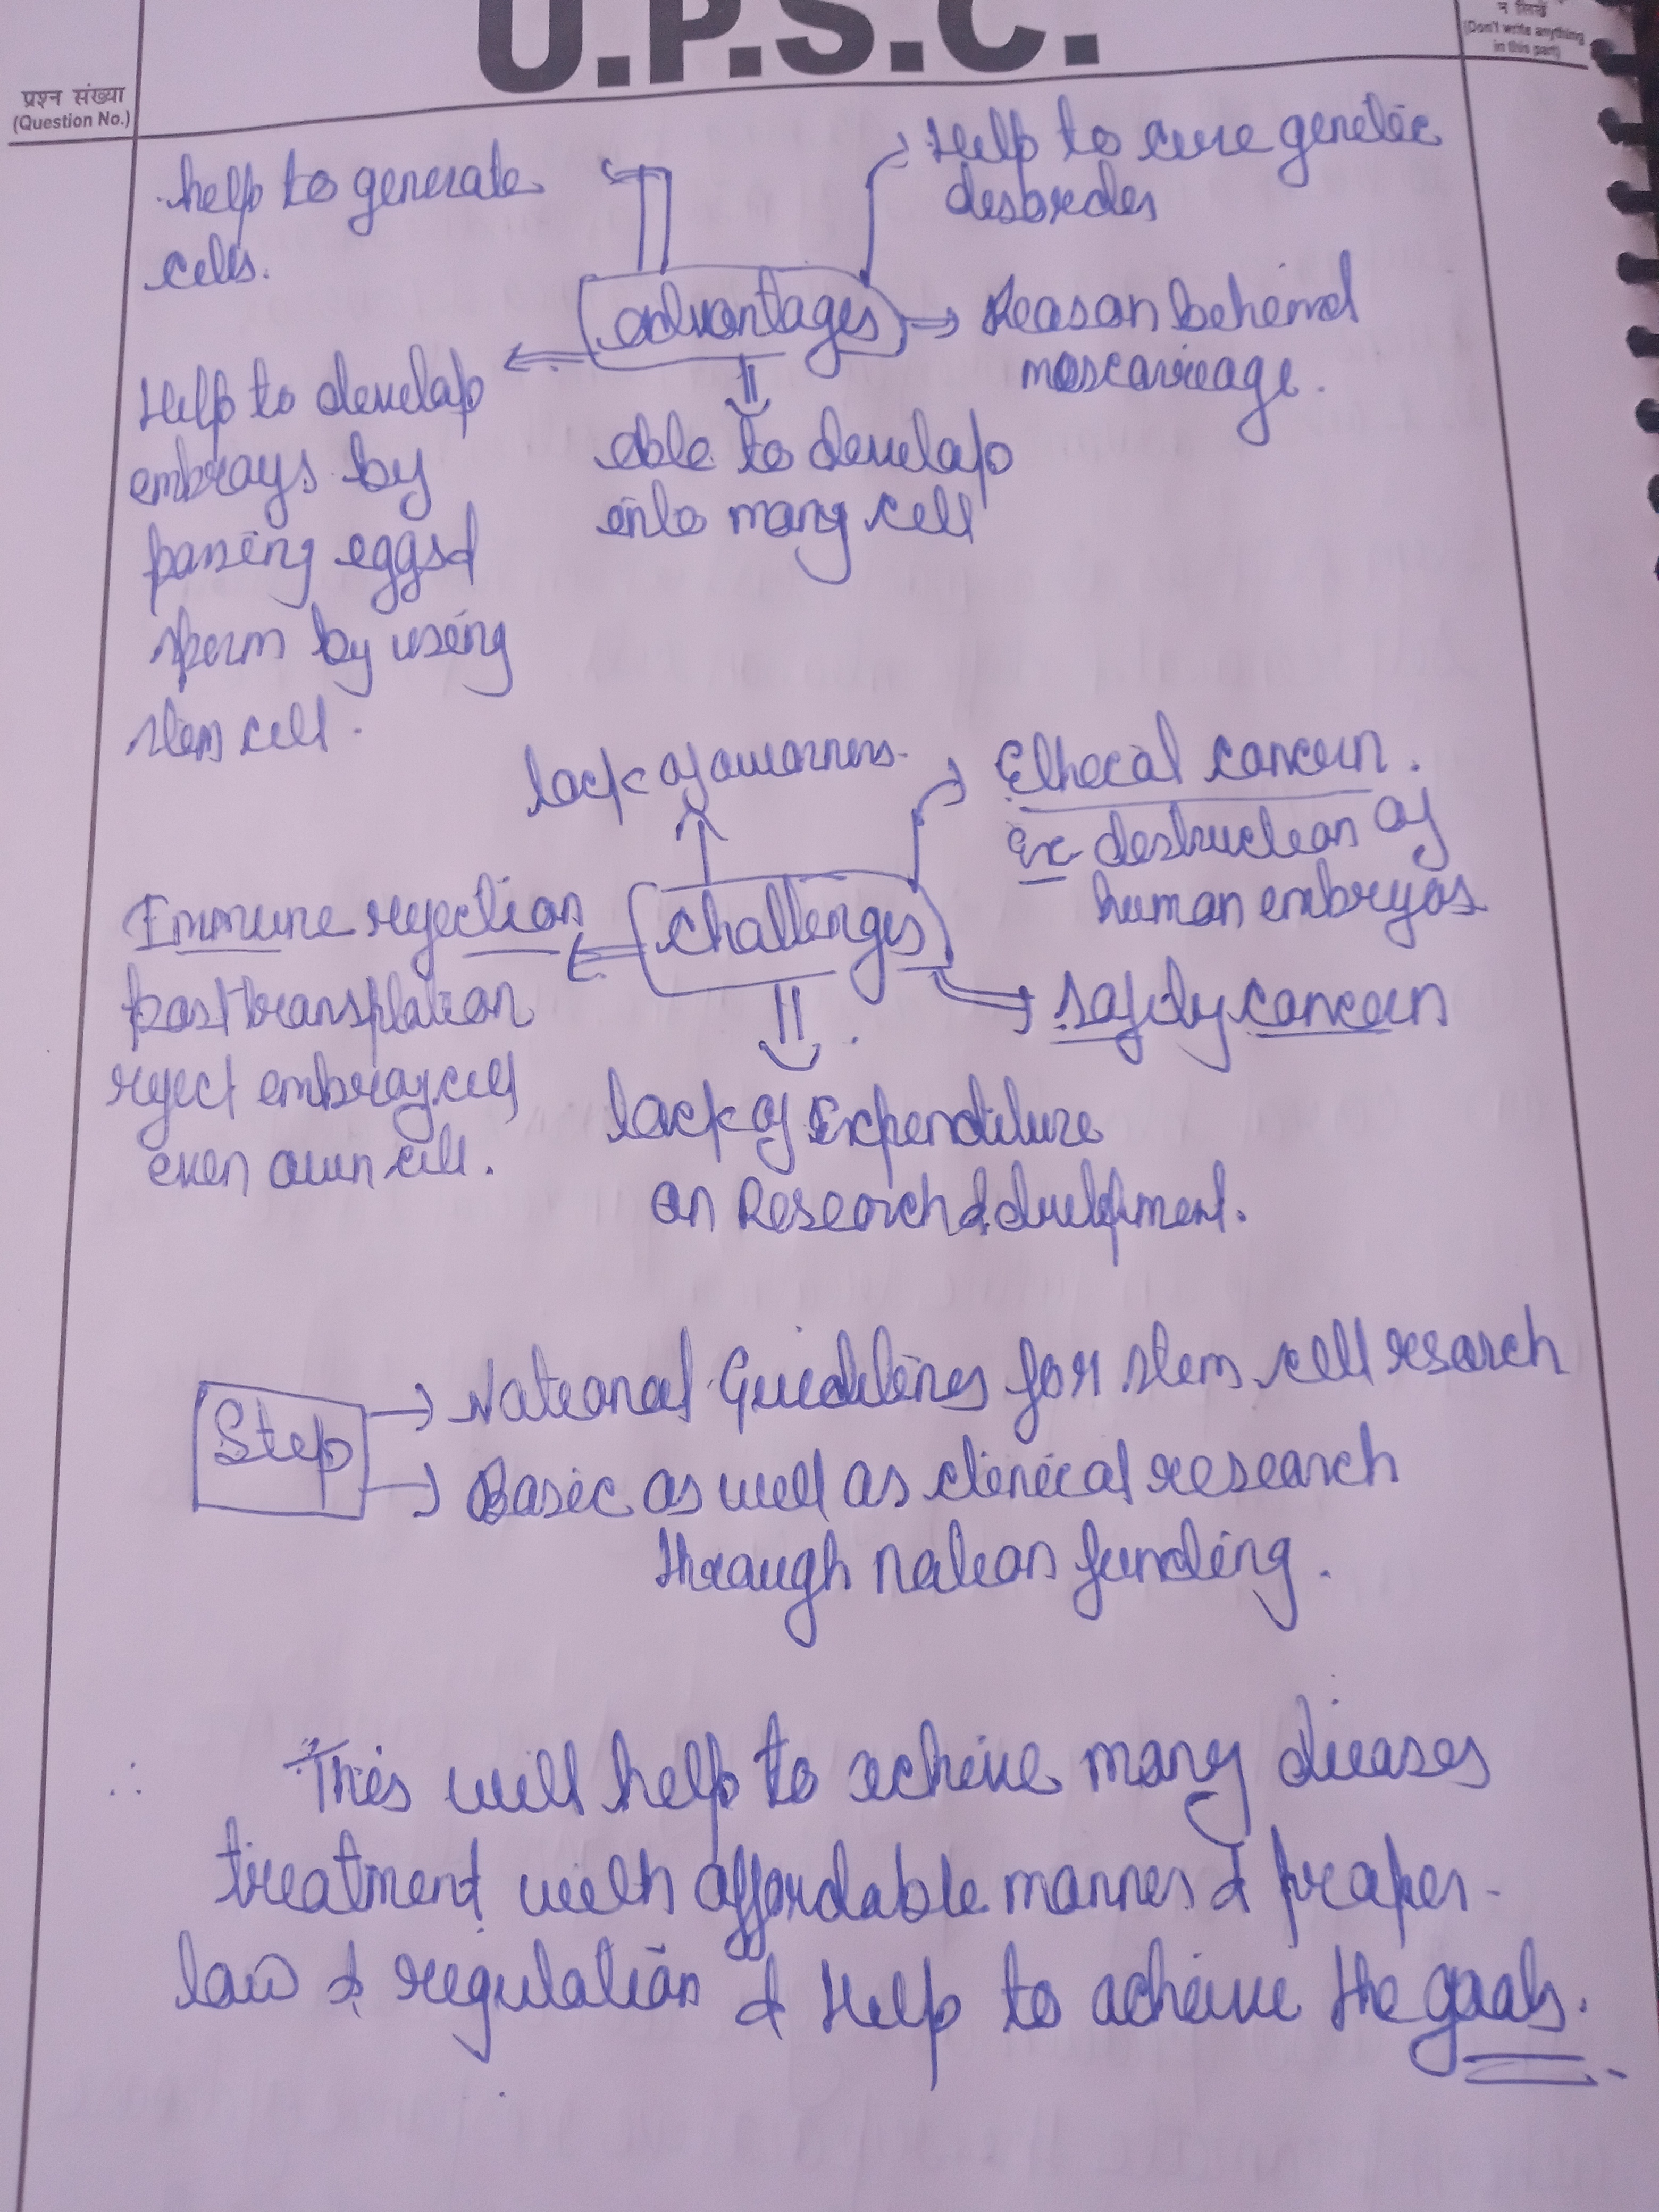 U.P.S.C.
न लिखें
(Don't write anything
in this part)
प्रश्न संख्या
(Question No.)
help to generate
cells.
Help to cure genetic
desbreder
advantages
Reason behind
moscarriage.
Help to develop
embrays by
passing eggs &
sperm by using
stem cell.
able to develop
into many cell
lack of awarness.
Ethecal concern.
Ex destruction of
human embryos
challenges
Immune rejection
post transplation
reject embray cell
even own cell.
safety concern
lack of Expenditure
on Research & develpment.
Step
National Guidelines for stem cell resarch
Basic as well as clinical research
through nation funding.
This will help to acheive many dieases
treatment with affordable manner & proper
law & regulation & Help to acheive the goals.